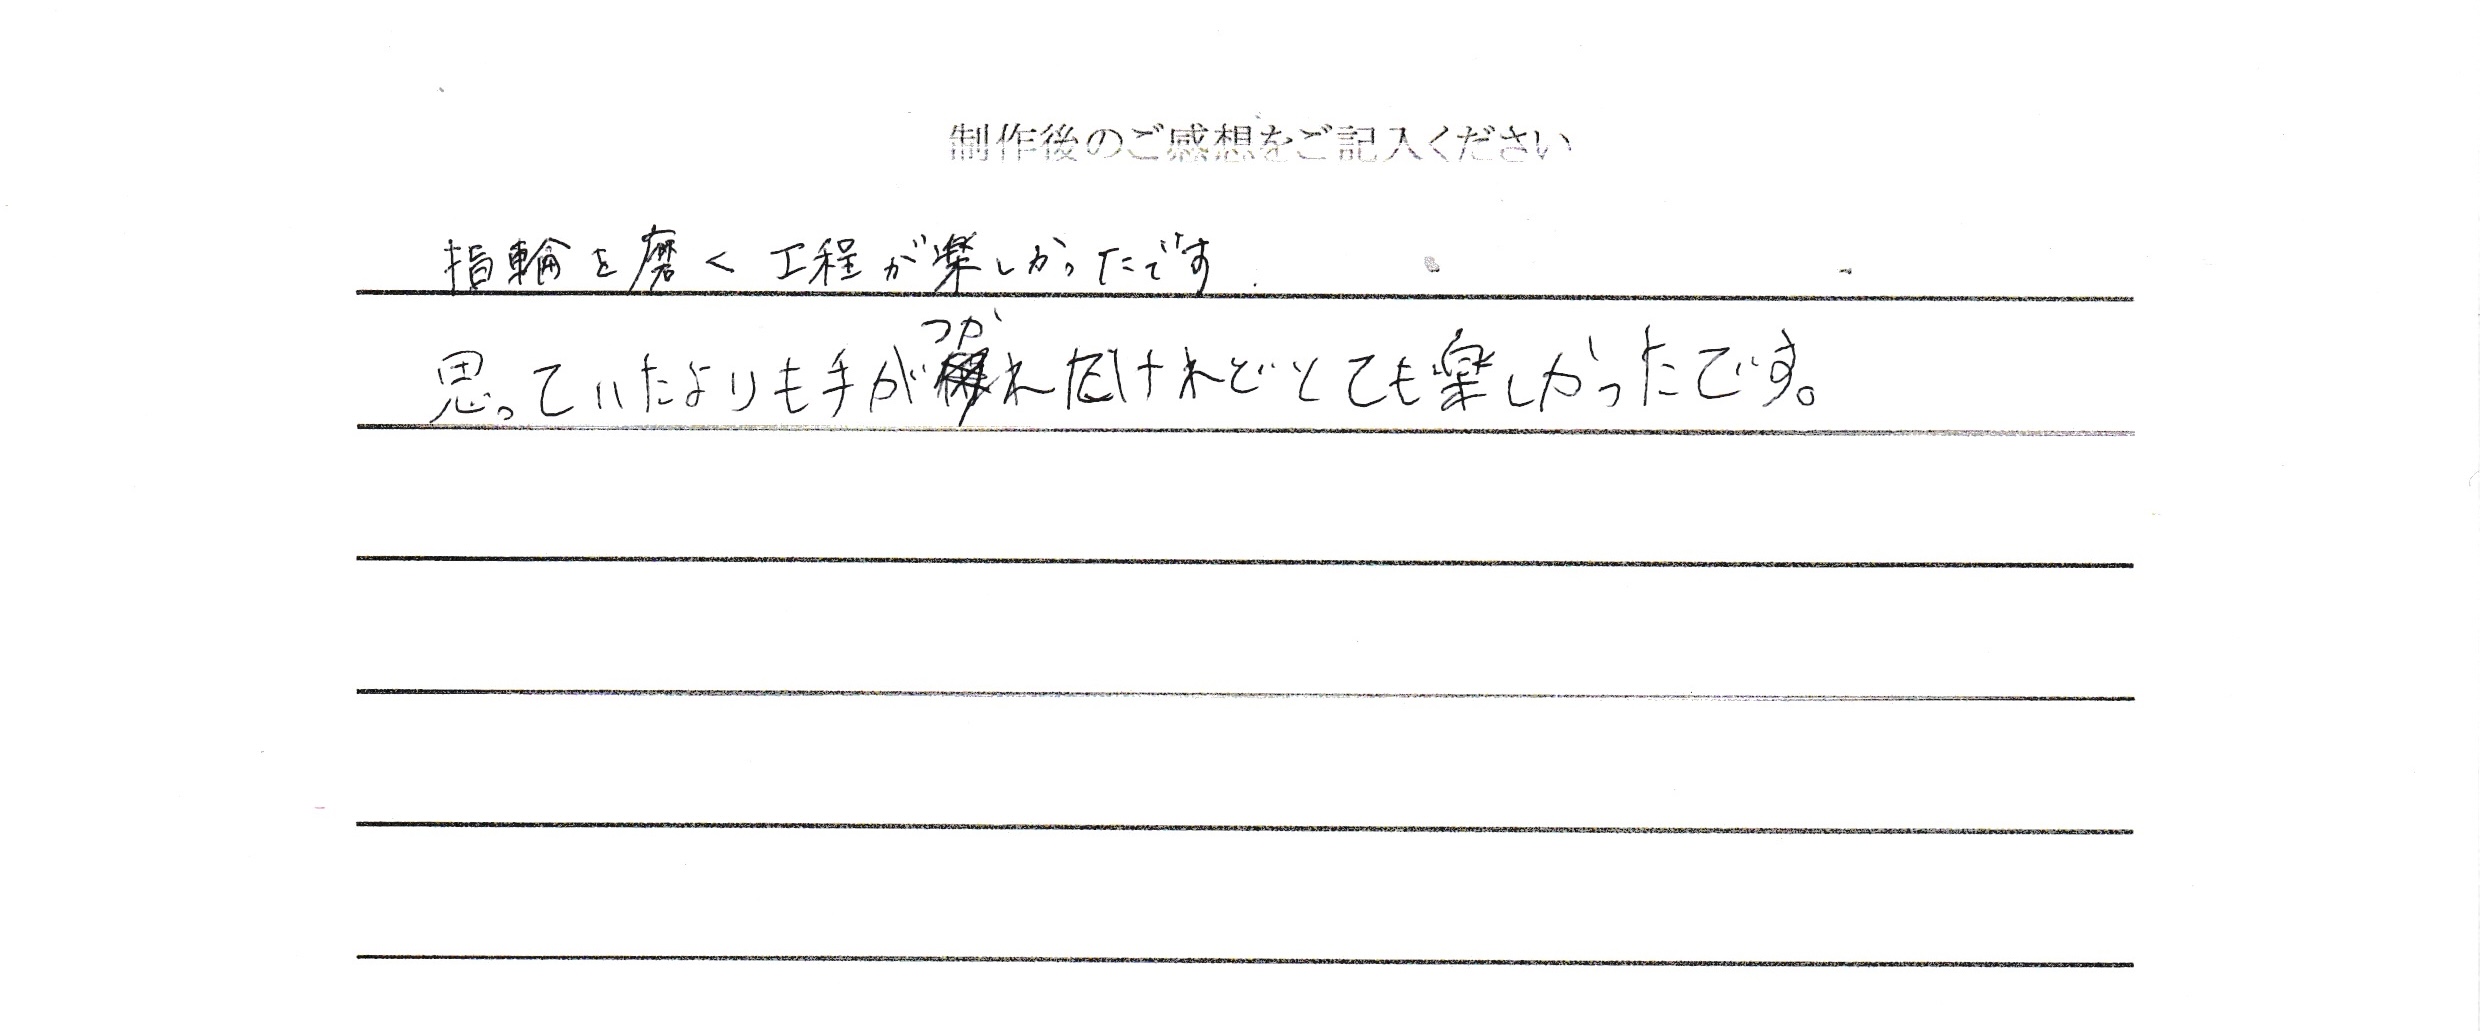 制作後のご感想をご記入ください
指輪を磨く工程が楽しかったです
思っていたよりも手がつかれたけれどとても楽しかったです。